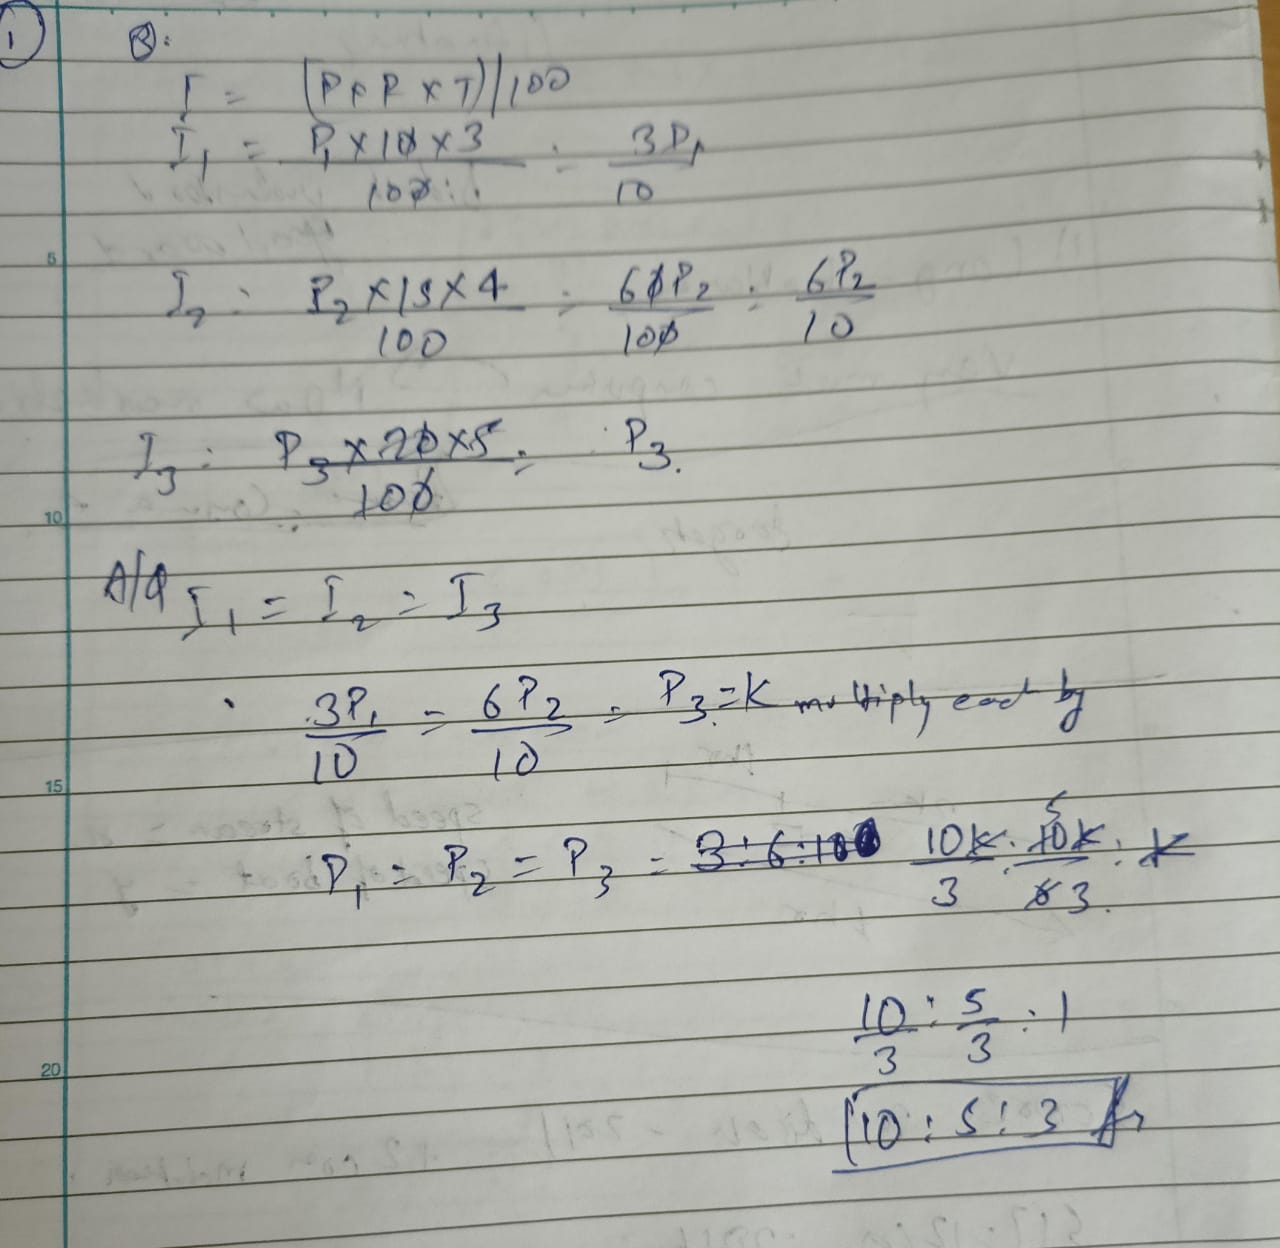 1
B:
I = (P × R × T)/100
I₁ = P₁ × 10 × 3 / 100 = 3P₁ / 10
5
I₂ = P₂ × 15 × 4 / 100 = 60P₂ / 100 = 6P₂ / 10
I₃ = P₃ × 20 × 5 / 100 = P₃.
10
A/Q I₁ = I₂ = I₃
3P₁ / 10 = 6P₂ / 10 = P₃ = K multiply each by
15
P₁ = P₂ = P₃ = 3:6:10 10K / 3 : 5 10K / 6 3 : K
10/3 : 5/3 : 1
20
10 : 5 : 3